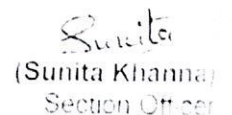 Sunita
(Sunita Khanna)
Section Officer